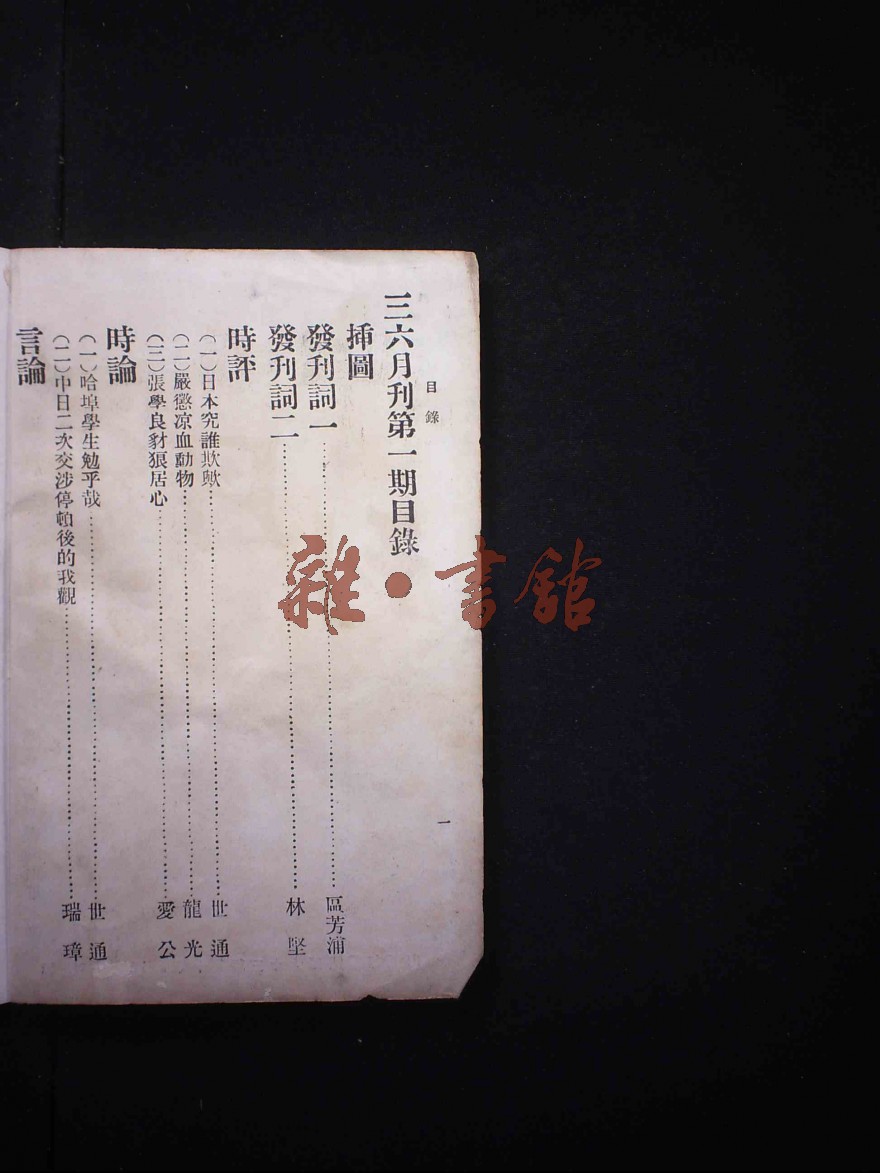 目錄
一
三六月刊第一期目錄
插圖
發刊詞一……區芳浦
發刊詞二……林堅
時評
(一)日本究誰欺歟……世通
(二)嚴懲凉血動物……龍光
(三)張學良豺狼居心……愛公
時論
(一)哈埠學生勉乎哉……世通
(二)中日二次交涉停頓後的我觀……瑞璋
言論
雜·書館